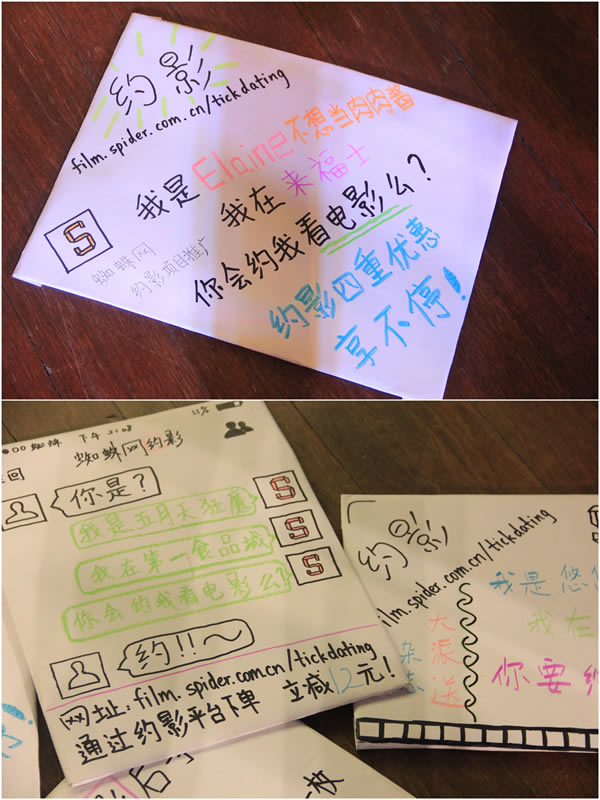 约影
film.spider.com.cn/tickdating
我是 Elaine不想当肉肉酱
我在 来福士
你会约我看电影么?
S
蜘蛛网
约影项目推广
约影四重优惠
享不停!
蜘蛛
下午 2:08
蜘蛛网约影
回
你是?
我是五月天狂魔
S
我在第一食品城
S
你会约我看电影么?
S
约!!~
网址:film.spider.com.cn/tickdating
通过约影平台下单 立减12元!
约影
film.spider.com.cn/tickdating
我是悠
我在
你要
大派送
杂志
后
一枚